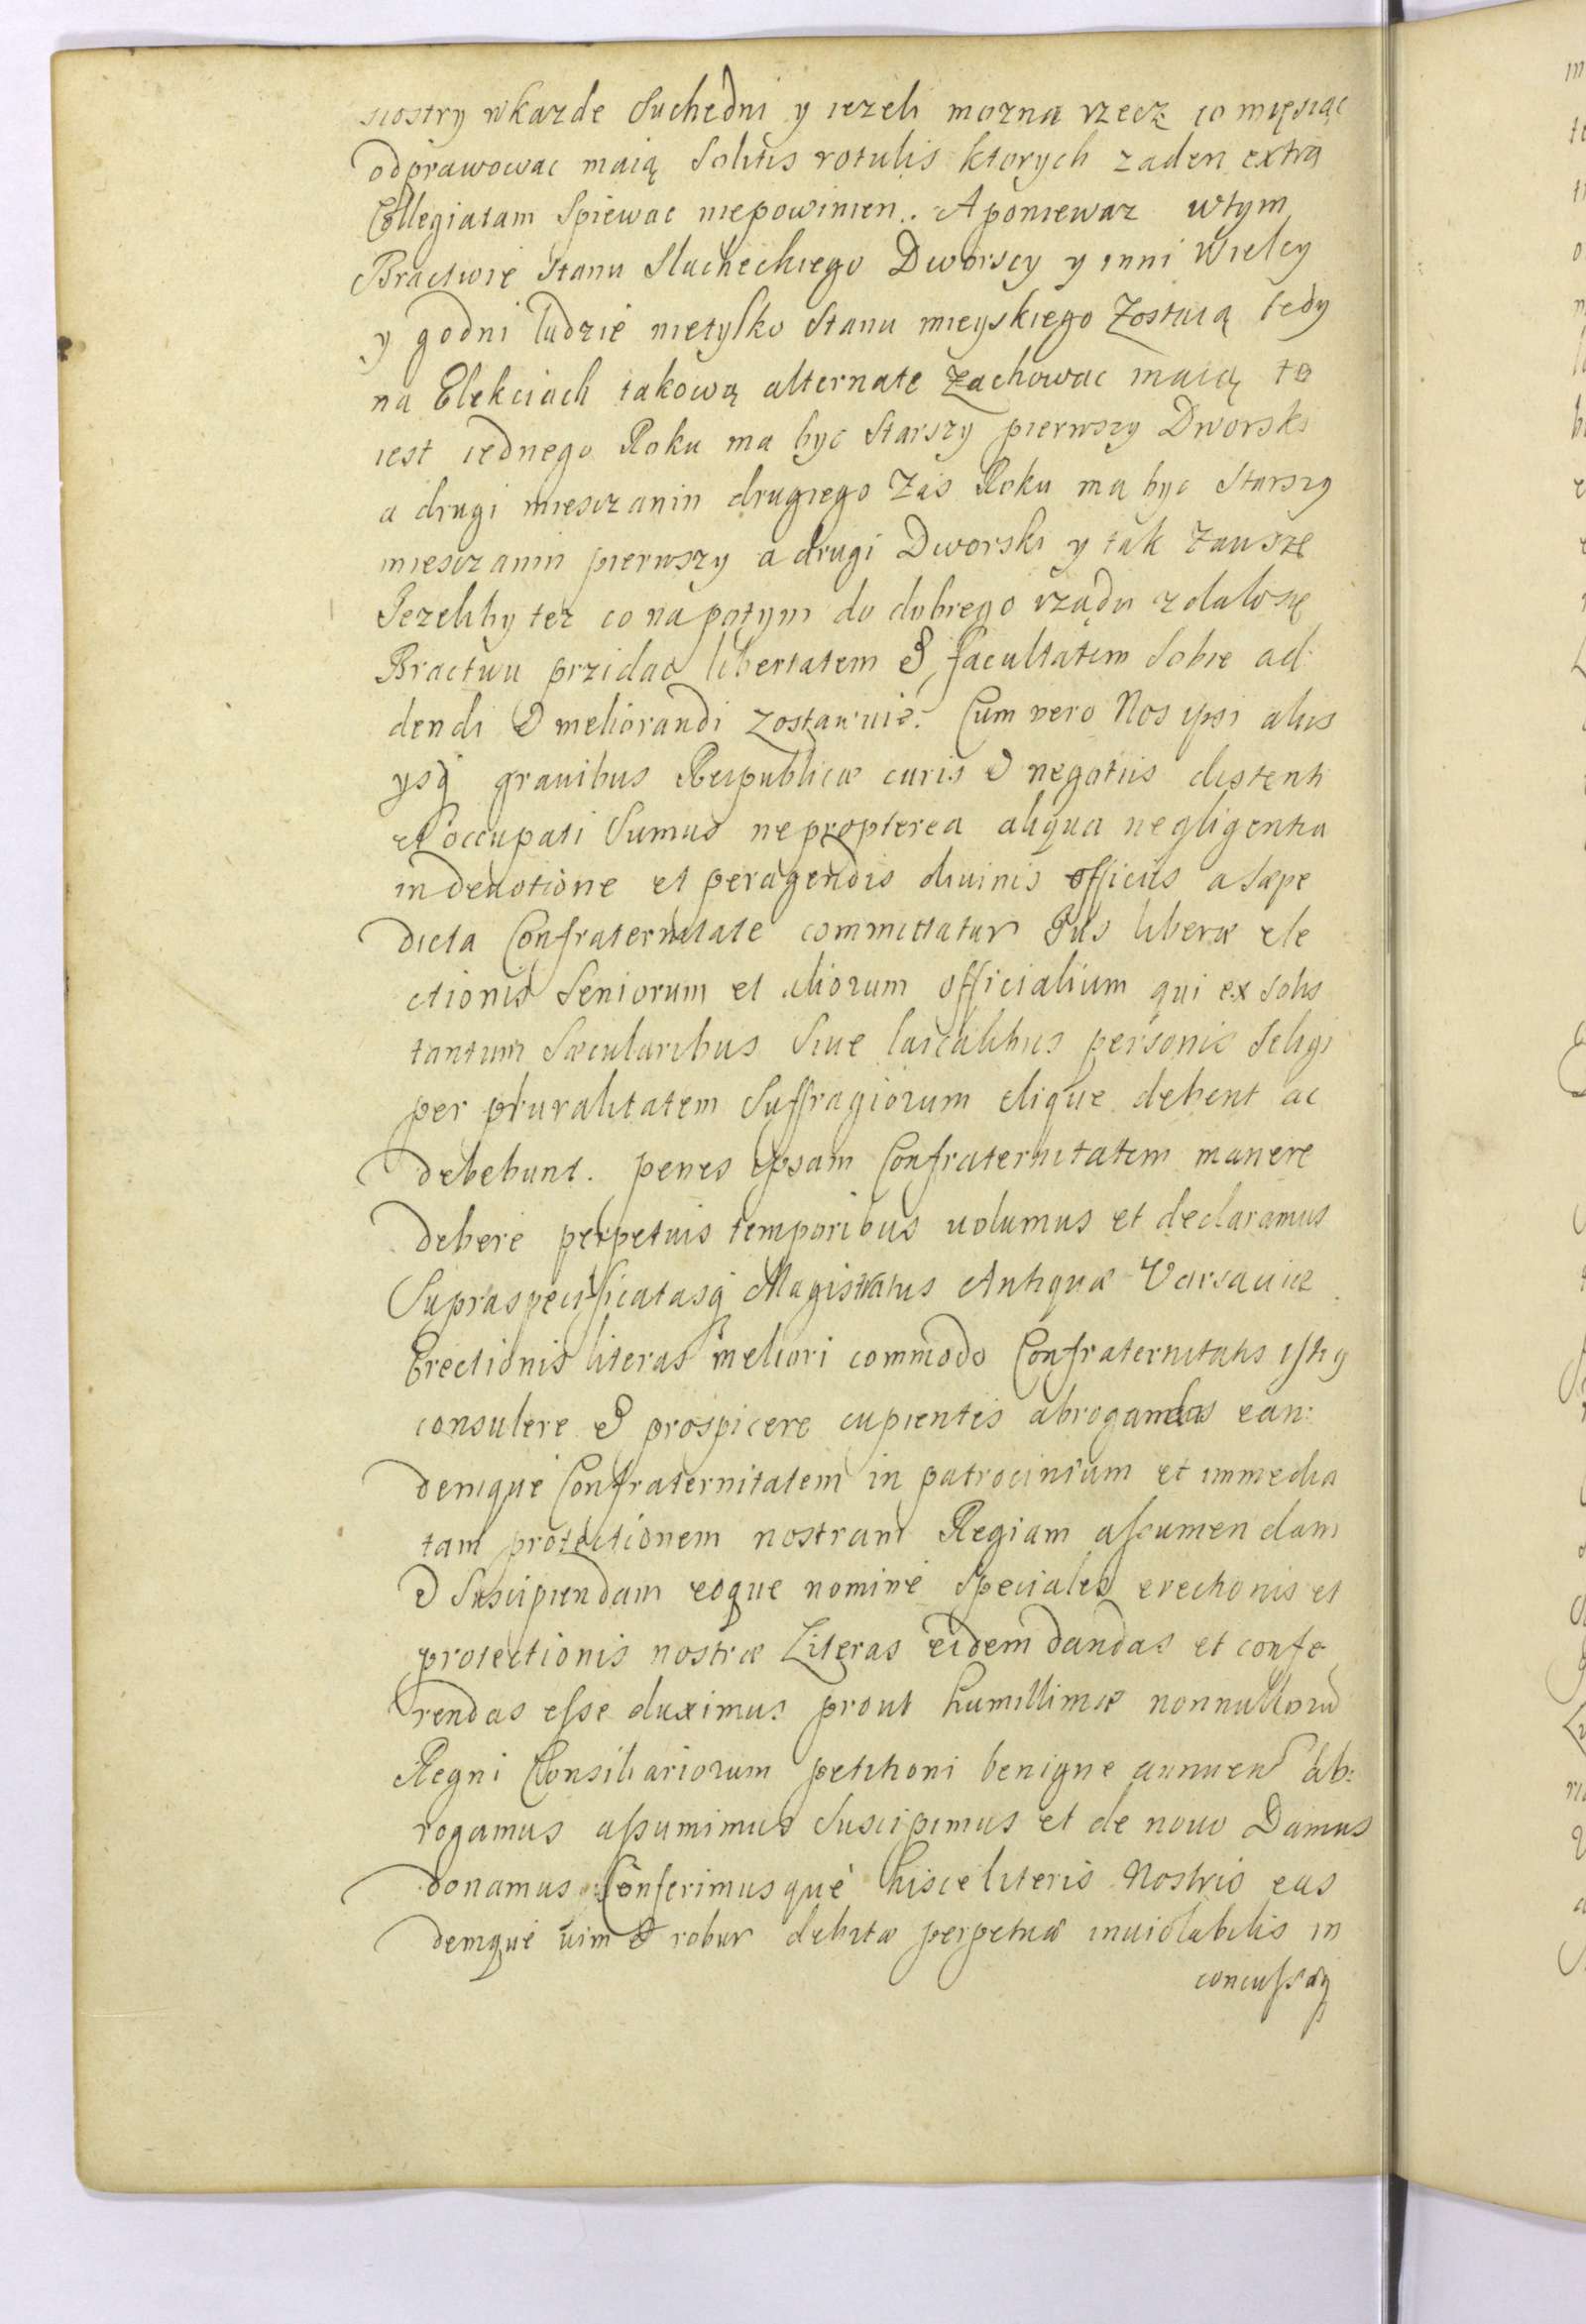 siostry wkazde Suchedni y iezeli mozna rzecz co męsiąc
odprawowac maią Solitis rotulis ktorych zaden extra
Collegiatam Spiewac niepowinien. A poniewaz wtym
Bractwie Stanu Slacheckiego Dworscy y inni Wielcy
y godni ludzie nietylko Stanu mieyskiego Zostaią tedy
na Elekciach takową alternate Zachowac maią to
iest iednego Roku ma byc Starszy pierwszy Dworski
a drugi miesczanin drugiego Zas Roku ma byc Starszy
miesczanin pierwszy a drugi Dworski y tak Zausze
Jezeliby tez co napotym do dobrego rządu zdalosię
Bractwu przidac libertatem & facultatem Sobie ad:
dendi & meliorandi zostawuie. Cum vero Nos ipsi aliis
ysq grauibus Reipublicæ curis & negotiis distenti
et occupati Sumus ne propterea aliqua negligentia
in deuotione et peragendis diuinis officiis a Sæpe
dicta Confraternitate committatur Jus liberæ ele
ctionis Seniorum et aliorum officialium qui ex Solis
tantum Sæcularibus Siue laicalibus personis Seligi
per pluralitatem Suffragiorum eliqque debent ac
debebunt. penes ipsam Confraternitatem manere
debere perpetuis temporibus uolumus et declaramus
Supraspecificatasq Magistratus Antiquæ Varsauiæ
Erectionis literas meliori commodo Confraternitatis istiq
consulere & prospicere cupientes abrogandas ean:
demque Confraternitatem in patrocinium et immedia
tam protectionem nostram Regiam assumendam
& Suscipiendam eoque nomine Speciales erectionis et
protectionis nostræ Literas eidem dandas et confe
rendas esse duximus prout humillimæ nonnullorũ
Regni Consiliariorum petitioni benigne annuen Ab:
rogamus assumimus Suscipimus et de nouo Damus
donamus Conferimusque hisce literis Nostris eas
demque uim & robur debitæ perpetuæ inuiolabilis in
concussæq